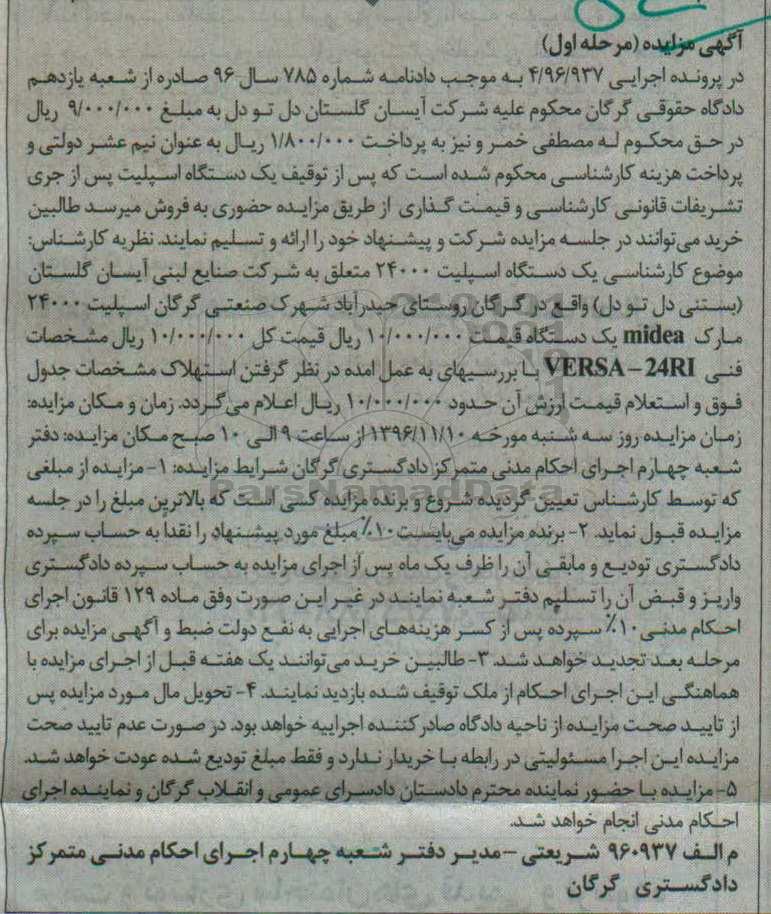 آگهی مزایده (مرحله اول)
در پرونده اجرایی ۴/۹۶/۹۳۷ به موجب دادنامه شماره ۷۸۵ سال ۹۶ صادره از شعبه یازدهم
دادگاه حقوقی گرگان محکوم علیه شرکت آیسان گلستان دل تو دل به مبلغ ۹/۰۰۰/۰۰۰ ریال
در حق محکوم له مصطفی خمر و نیز به پرداخت ۱/۸۰۰/۰۰۰ ریال به عنوان نیم عشر دولتی و
پرداخت هزینه کارشناسی محکوم شده است که پس از توقیف یک دستگاه اسپلیت پس از جری
تشریفات قانونی کارشناسی و قیمت گذاری از طریق مزایده حضوری به فروش میرسد طالبین
خرید می‌توانند در جلسه مزایده شرکت و پیشنهاد خود را ارائه و تسلیم نمایند. نظریه کارشناس:
موضوع کارشناسی یک دستگاه اسپلیت ۲۴۰۰۰ متعلق به شرکت صنایع لبنی آیسان گلستان
(بستنی دل تو دل) واقع در گرگان روستای حیدرآباد شهرک صنعتی گرگان اسپلیت ۲۴۰۰۰
مارک midea یک دستگاه قیمت ۱۰/۰۰۰/۰۰۰ ریال قیمت کل ۱۰/۰۰۰/۰۰۰ ریال مشخصات
فنی VERSA – 24RI با بررسیهای به عمل امده در نظر گرفتن استهلاک مشخصات جدول
فوق و استعلام قیمت ارزش آن حدود ۱۰/۰۰۰/۰۰۰ ریال اعلام می‌گردد. زمان و مکان مزایده:
زمان مزایده روز سه شنبه مورخه ۱۳۹۶/۱۱/۱۰ از ساعت ۹ الی ۱۰ صبح مکان مزایده: دفتر
شعبه چهارم اجرای احکام مدنی متمرکز دادگستری گرگان شرایط مزایده: ۱- مزایده از مبلغی
که توسط کارشناس تعیین گردیده شروع و برنده مزایده کسی است که بالاترین مبلغ را در جلسه
مزایده قبول نماید. ۲- برنده مزایده می‌بایست ۱۰٪ مبلغ مورد پیشنهاد را نقدا به حساب سپرده
دادگستری تودیع و مابقی آن را ظرف یک ماه پس از اجرای مزایده به حساب سپرده دادگستری
واریز و قبض آن را تسلیم دفتر شعبه نمایند در غیر این صورت وفق ماده ۱۲۹ قانون اجرای
احکام مدنی ۱۰٪ سپرده پس از کسر هزینه‌های اجرایی به نفع دولت ضبط و آگهی مزایده برای
مرحله بعد تجدید خواهد شد. ۳- طالبین خرید می‌توانند یک هفته قبل از اجرای مزایده با
هماهنگی این اجرای احکام از ملک توقیف شده بازدید نمایند. ۴- تحویل مال مورد مزایده پس
از تایید صحت مزایده از ناحیه دادگاه صادر کننده اجراییه خواهد بود. در صورت عدم تایید صحت
مزایده این اجرا مسئولیتی در رابطه با خریدار ندارد و فقط مبلغ تودیع شده عودت خواهد شد.
۵- مزایده با حضور نماینده محترم دادستان دادسرای عمومی و انقلاب گرگان و نماینده اجرای
احکام مدنی انجام خواهد شد.
م الف ۹۶۰۹۳۷ شریعتی – مدیر دفتر شعبه چهارم اجرای احکام مدنی متمرکز
دادگستری گرگان
ParsNamadData